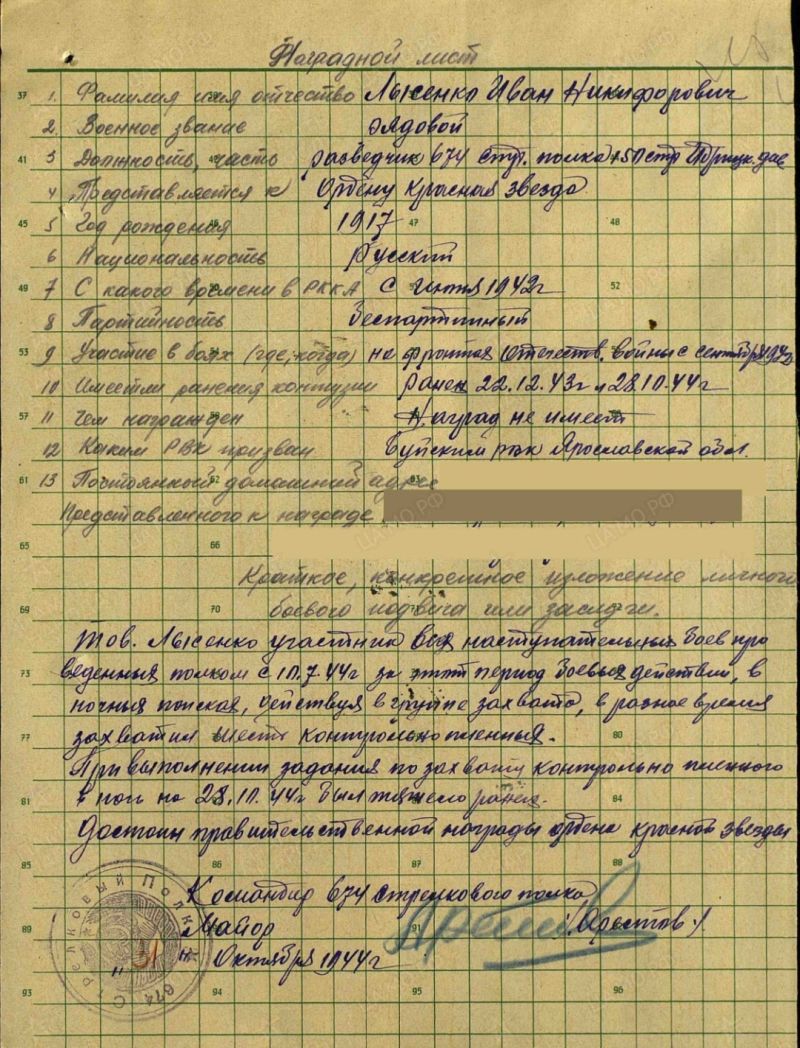 Наградной лист
1. Фамилия имя отчество Лысенко Иван Никифорович
2. Военное звание рядовой
3 Должность, часть разведчик 674 стр. полка 150 стр Идрицк. див
4 Представляется к ордену красная звезда
5 Год рождения 1917
6 Национальность русский
7 С какого времени в РККА с июня 1942г
8 Партийность беспартийный
9 Участие в боях (где, когда) на фронтах Отечеств. войны с сентября 1942
10 Имеет ли ранения контузии ранен 22.12.43г и 28.10.44г
11 Чем награжден Наград не имеет
12 Каким РВК призван Буйским рвк Ярославской обл.
13 Постоянный домашний адрес
представленного к награде
Краткое, конкретное изложение личного
боевого подвига или заслуги.
Тов. Лысенко участник всех наступательных боев про
веденных полком с 10.7.44г за этот период боевых действий, в
ночных поисках, действуя в группе захвата, в разное время
захватил шесть контрольно пленных.
При выполнении задания по захвату контрольно пленного
в ночь на 28.10.44г был тяжело ранен.
Достоин правительственной награды ордена красной звезды
Командир 674 стрелкового полка
Майор /Арестов/
"31" Октября 1944г
674 Стрелковый Полк